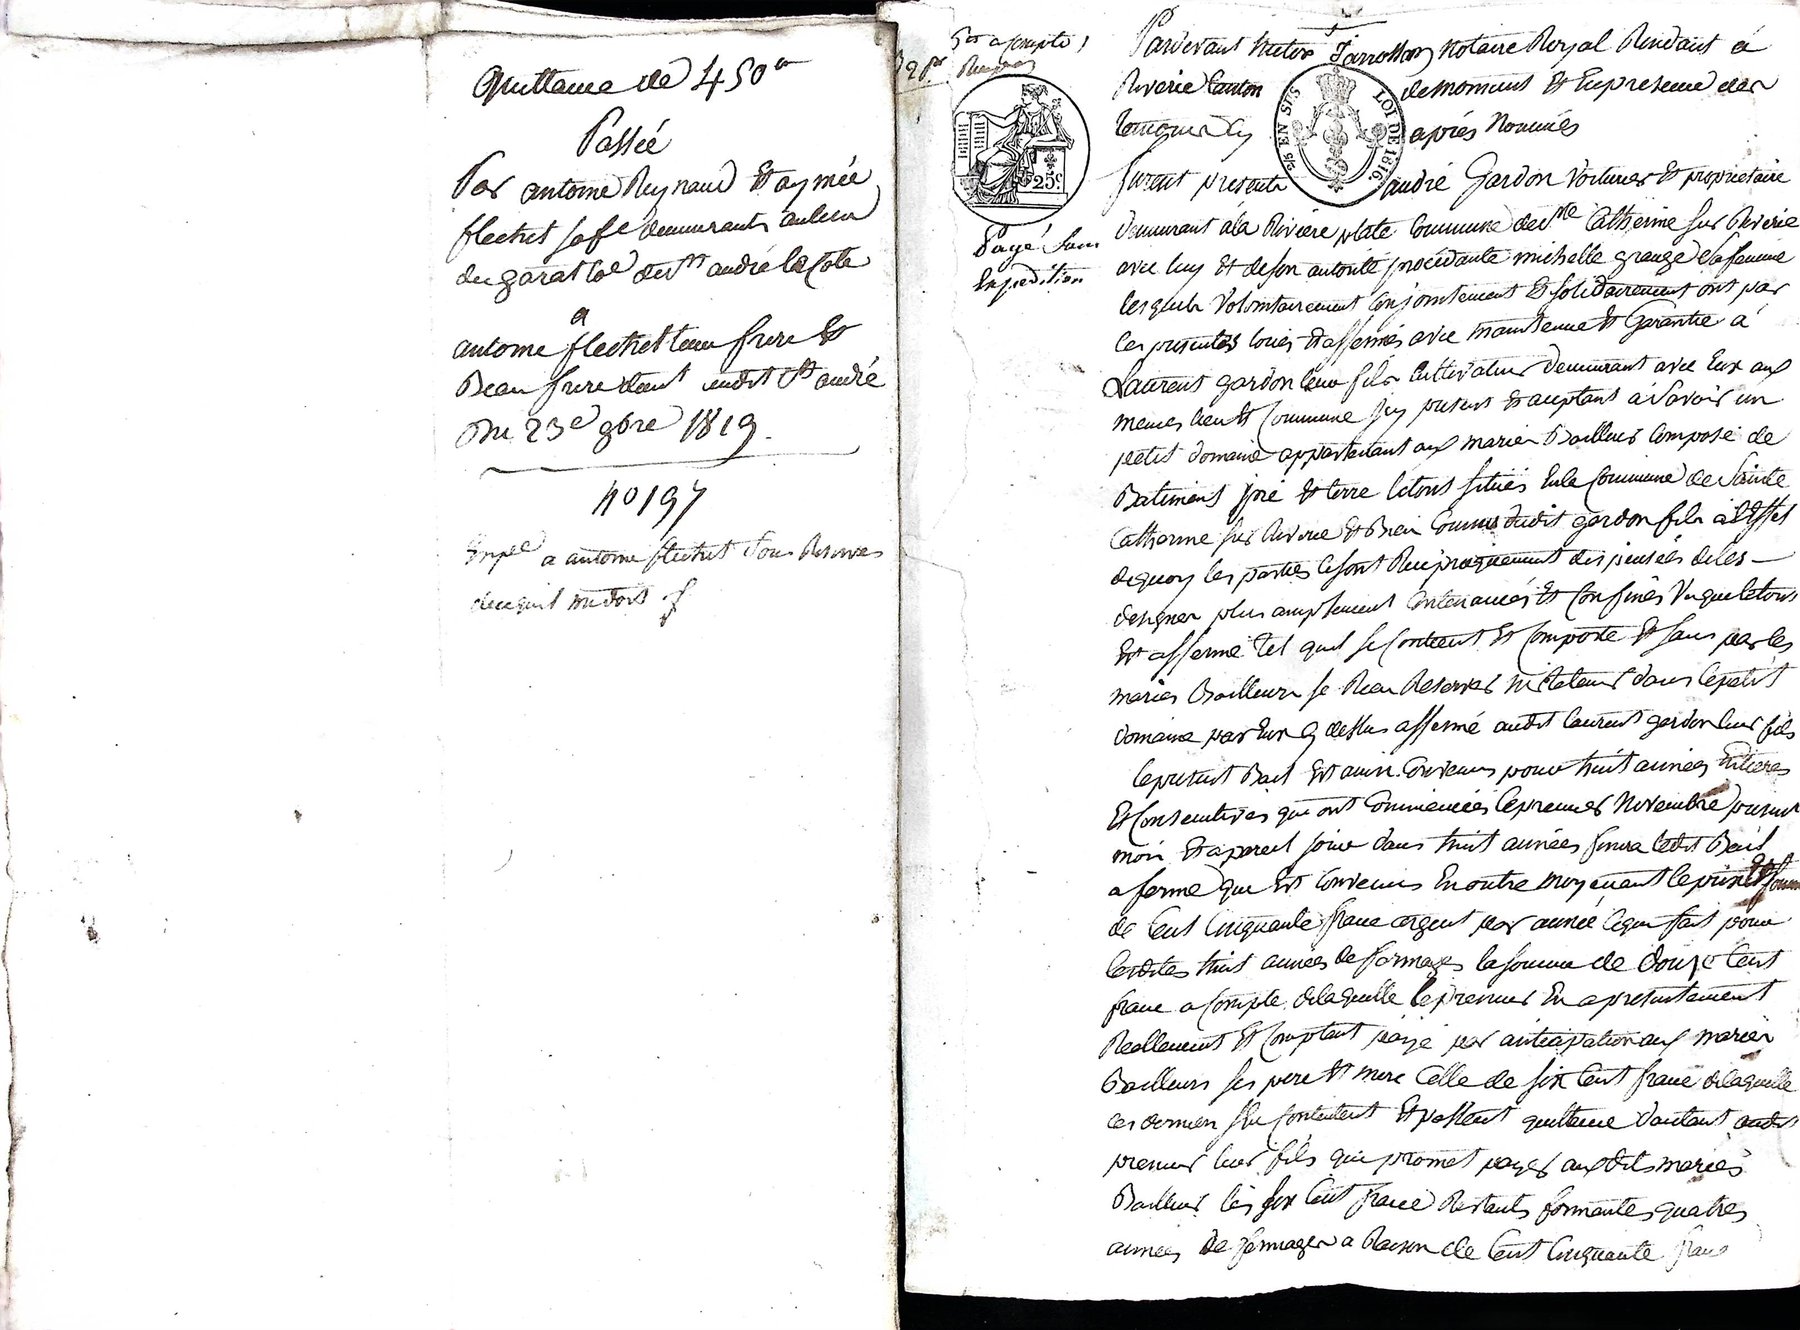 Quittance de 450 fr
Passée
Par antoine Reynaud Et aymée
flechet sa fe demeurants aulieu
du garat Coe de st andré la Cote
a
antoine flechet leur frere Et
Beau frere dem.t audit St andré
Du 23e 9bre 1819.
No 197
Exp.ée a antoine flechet sous Reserves
de ce quil me doit
5 fr a compte
28
Pardevant Victor Jarrosson Notaire Royal Residant à
Riverie Canton de mornant Et En presence des
temoins cy après Nommés
25c
25c EN SUS
LOI DE 1816
furent presents andré Gardon Voiturier Et propriétaire
Payé Sans
Expedition
demeurant à la Rivière plate Commune de Ste Catherine sur Riverie
avec luy Et de son autorité procédante michelle grange sa femme
lesquels Volontairement Conjointement Et solidairement ont par
les presentes loués Et affermés avec maintenue Et Garantie à
Laurent gardon leur fils Cultivateur demeurant avec Eux aux
memes lieu Et Commune Icy present Et acceptant à Savoir un
petit domaine appartenant aux mariés Bailleurs Composé de
Batimens pré Et terre letout situés En la Commune de Sainte
Catherine sur Riverie Et Bien Connus dudit gardon fils à L'Effet
dequoy les parties se sont Reciproquement dispensées de les
designer plus amplement Contenances Et Confinés Vu que letout
Est affermé tel quil se Contient Et Comporte Et sans par les
mariés Bailleurs se Rien Reserver ni Retenir dans le petit
domaine par Eux cy dessus affermé audit laurent gardon leur fils
le present Bail Est ainsi Convenu pour huit années Entieres
Et Consecutives qui ont Commencées le premier Novembre present
mois Et a pareil jour dans huit années finira ledit Bail
a ferme que Est Convenu En outre moyenant le prix Et somme
de Cent Cinquante franc argent par année Ce qui fait pour
lesdites huit années de fermages la somme de douze Cent
franc a Compte de laquelle le premier En a presentement
Reellement Et Comptant payé par anticipation aux mariés
Bailleurs ses pere Et mere Celle de six Cent franc de laquelle
ces derniers s'En Contentent Et passent quittance d'autant audit
premier leur fils qui promet payer aux dits mariés
Bailleurs les six Cent franc Restants formants quatres
années de fermages a Raison de Cent Cinquante franc